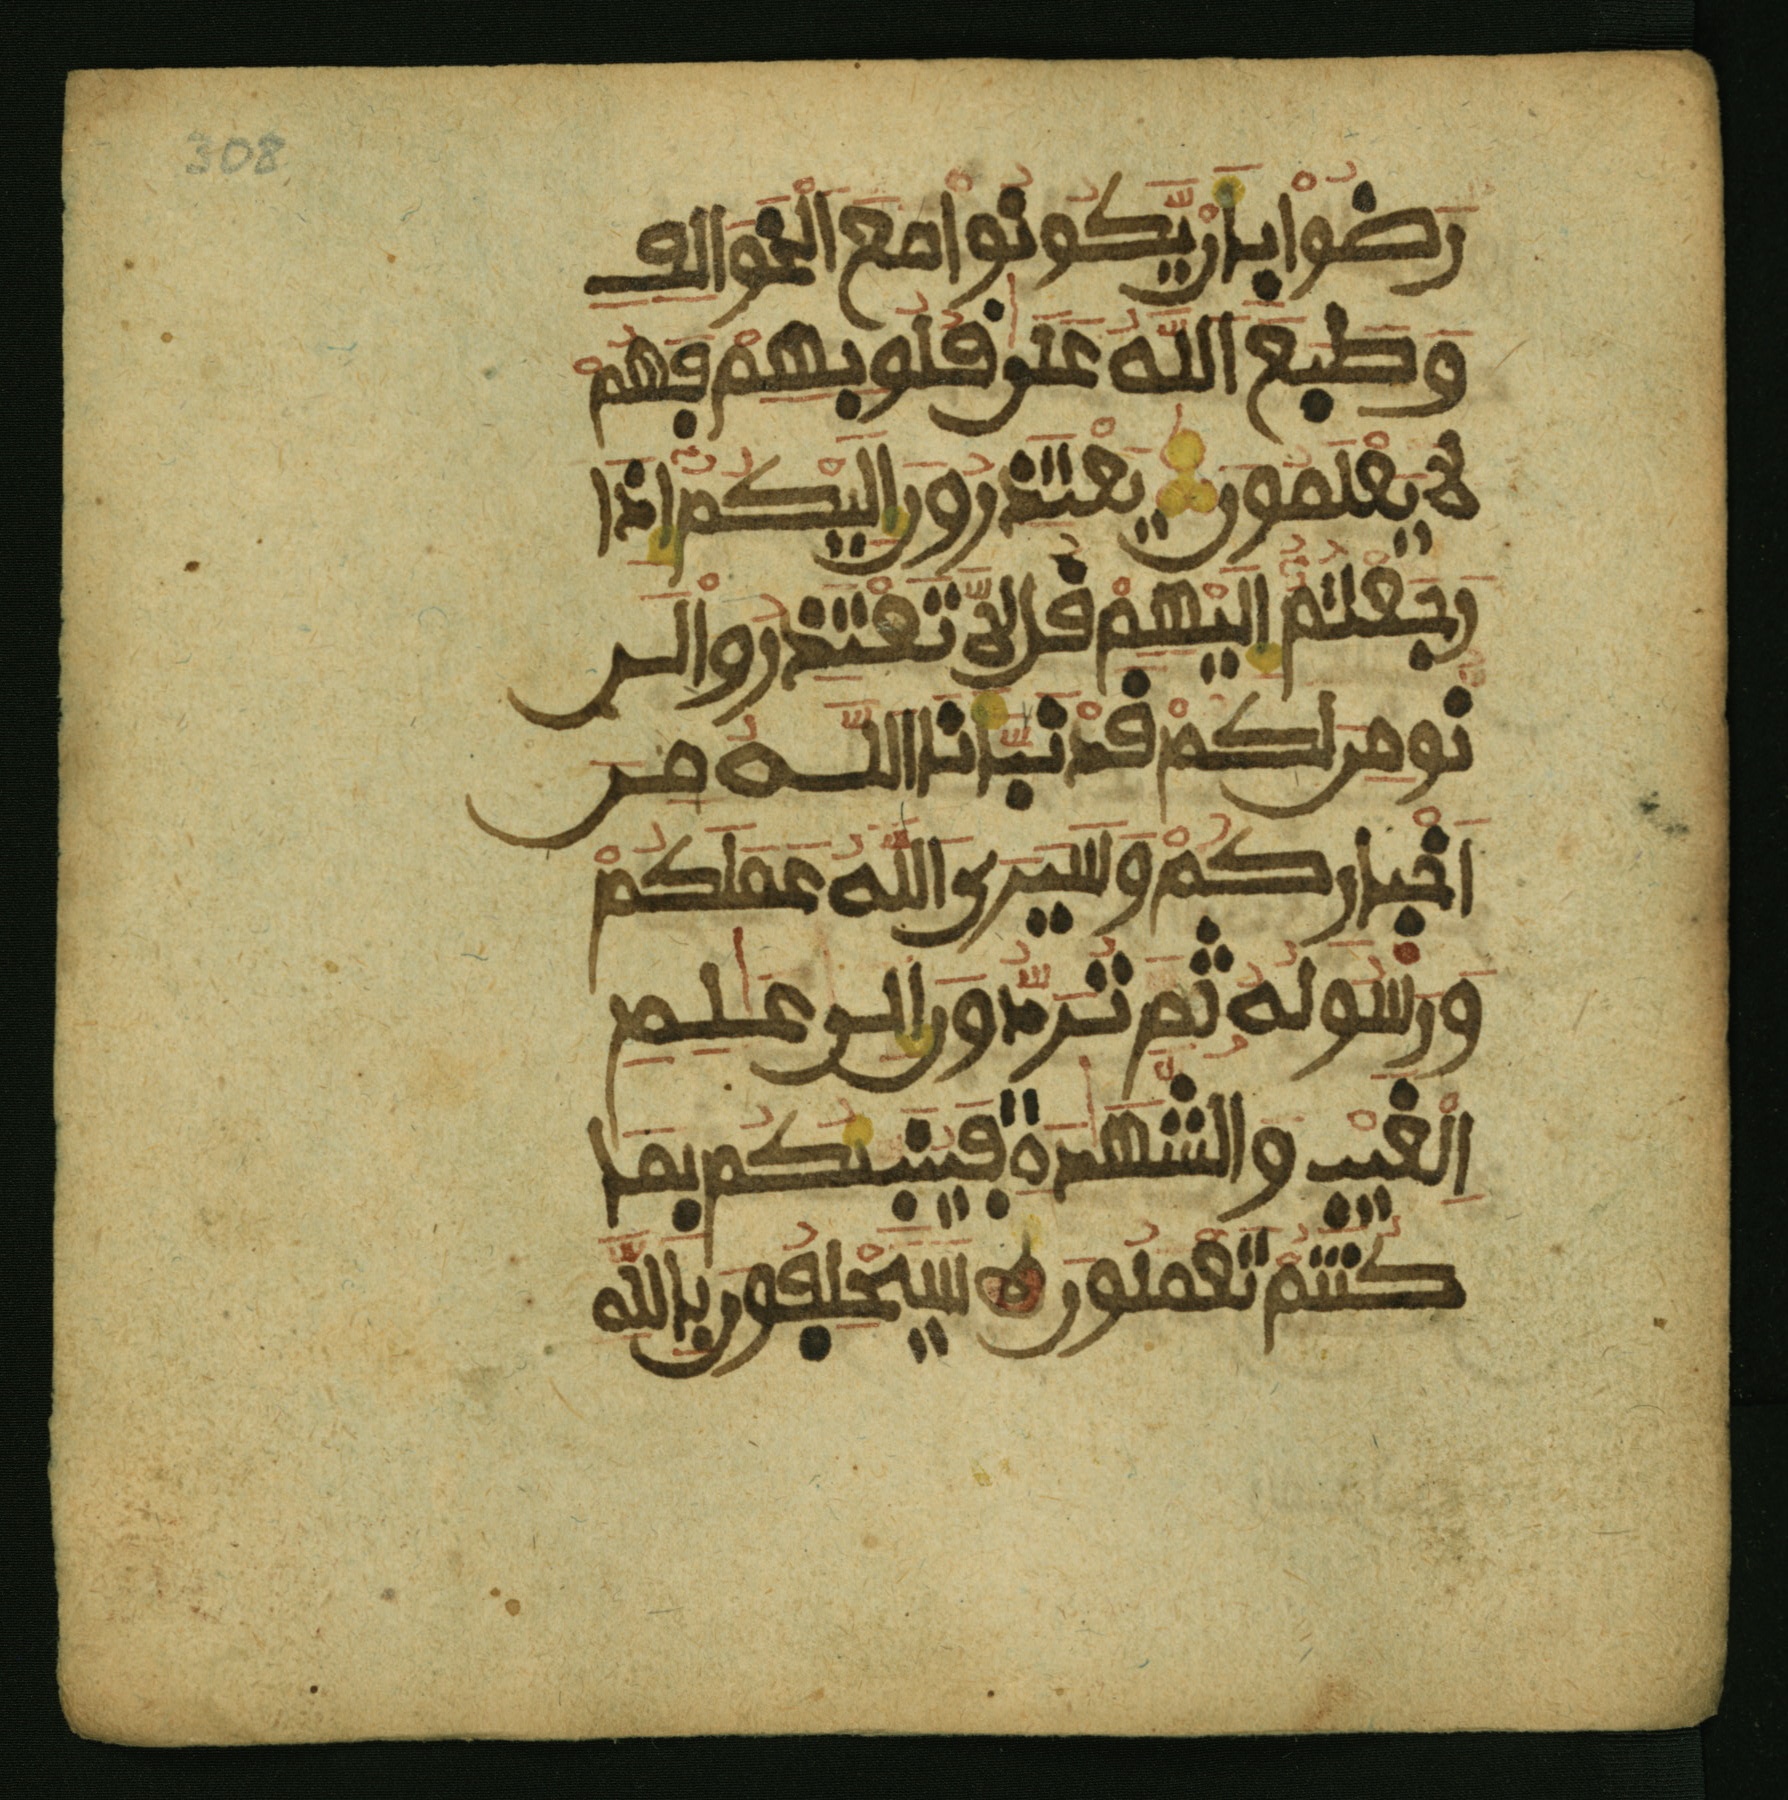 308
رَضُواْ بِأَن يَّكُونُواْ مَعَ اَلْخَوَالِفِ
وَطَبَعَ اَللَّهُ عَلَىٰ قُلُوبِهِمْ فَهُمْ
لَا يَعْلَمُونَ يَعْتَذِرُونَ إِلَيْكُمْ إِذَا
رَجَعْتُمْ إِلَيْهِمْ قُل لَّا تَعْتَذِرُواْ لَن
نُّومِنَ لَكُمْ قَدْ نَبَّأَنَا اَللَّهُ مِنْ
أَخْبَارِكُمْ وَسَيَرَى اَللَّهُ عَمَلَكُمْ
وَرَسُولُهُ ثُمَّ تُرَدُّونَ إِلَىٰ عَٰلِمِ
اِلْغَيْبِ وَالشَّهَٰدَةِ فَيُنَبِّئُكُم بِمَا
كُنتُمْ تَعْمَلُونَ ه سَيَحْلِفُونَ بِاللَّهِ